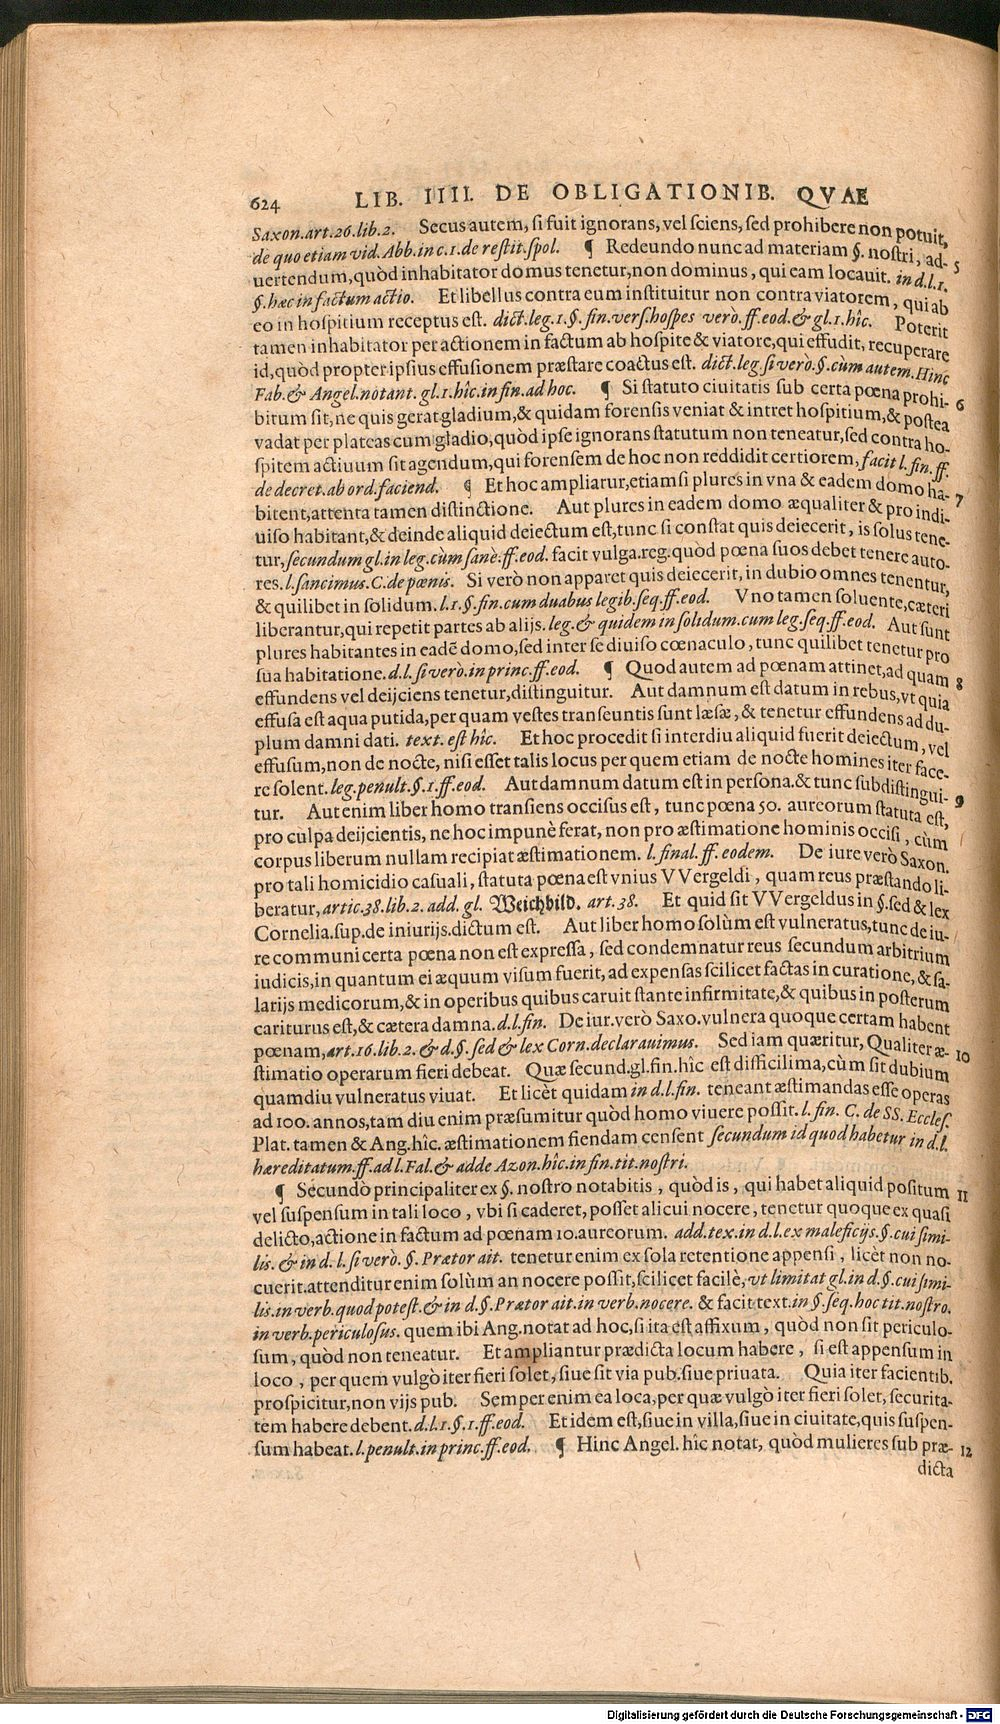 624 LIB. IIII. DE OBLIGATIONIB. QVAE
Saxon.art.26.lib.2. Secus autem, si fuit ignorans, vel sciens, sed prohibere non potuit,
de quo etiam vid. Abb. in c.1. de restit. spol. ¶ Redeundo nunc ad materiam §. nostri, ad- 5
uertendum, quòd inhabitator domus tenetur, non dominus, qui eam locauit. in d.l.1.
§. hæc in factum actio. Et libellus contra eum instituitur non contra viatorem, qui ab
eo in hospitium receptus est. dict. leg. 1. §. fin. vers. hospes verò. ff. eod. & gl. 1. hîc. Poterit
tamen inhabitator per actionem in factum ab hospite & viatore, qui effudit, recuperare
id, quòd propter ipsius effusionem præstare coactus est. dict. leg. si verò. §. cùm autem. Hinc
Fab. & Angel. notant. gl. 1. hîc. in fin. ad hoc. ¶ Si statuto ciuitatis sub certa pœna prohi- 6
bitum sit, ne quis gerat gladium, & quidam forensis veniat & intret hospitium, & postea
vadat per plateas cum gladio, quòd ipse ignorans statutum non teneatur, sed contra ho-
spitem actiuum sit agendum, qui forensem de hoc non reddidit certiorem, facit l. fin. ff.
de decret. ab ord. faciend. ¶ Et hoc ampliatur, etiamsi plures in vna & eadem domo ha- 7
bitent, attenta tamen distinctione. Aut plures in eadem domo æqualiter & pro indi-
uiso habitant, & deinde aliquid deiectum est, tunc si constat quis deiecerit, is solus tene-
tur, secundum gl. in leg. cùm sanè. ff. eod. facit vulga. reg. quòd pœna suos debet tenere auto-
res. l. sancimus. C. de pœnis. Si verò non apparet quis deiecerit, in dubio omnes tenentur,
& quilibet in solidum. l. 1. §. fin. cum duabus legib. seq. ff. eod. Vno tamen soluente, cæteri
liberantur, qui repetit partes ab alijs. leg. & quidem in solidum. cum leg. seq. ff. eod. Aut sunt
plures habitantes in eadē domo, sed inter se diuiso cœnaculo, tunc quilibet tenetur pro
sua habitatione. d. l. si verò. in princ. ff. eod. ¶ Quod autem ad pœnam attinet, ad quam 8
effundens vel deijciens tenetur, distinguitur. Aut damnum est datum in rebus, vt quia
effusa est aqua putida, per quam vestes transeuntis sunt læsæ, & tenetur effundens ad du-
plum damni dati. text. est hîc. Et hoc procedit si interdiu aliquid fuerit deiectum, vel
effusum, non de nocte, nisi esset talis locus per quem etiam de nocte homines iter face-
re solent. leg. penult. §. 1. ff. eod. Aut damnum datum est in persona. & tunc subdistingui- 9
tur. Aut enim liber homo transiens occisus est, tunc pœna 50. aureorum statuta est,
pro culpa deijcientis, ne hoc impunè ferat, non pro æstimatione hominis occisi, cùm
corpus liberum nullam recipiat æstimationem. l. final. ff. eodem. De iure verò Saxon.
pro tali homicidio casuali, statuta pœna est vnius VVergeldi, quam reus præstando li-
beratur, artic. 38. lib. 2. add. gl. Weichbild. art. 38. Et quid sit VVergeldus in §. sed & lex
Cornelia. sup. de iniurijs. dictum est. Aut liber homo solùm est vulneratus, tunc de iu-
re communi certa pœna non est expressa, sed condemnatur reus secundum arbitrium
iudicis, in quantum ei æquum visum fuerit, ad expensas scilicet factas in curatione, & sa-
larijs medicorum, & in operibus quibus caruit stante infirmitate, & quibus in posterum
cariturus est, & cætera damna. d. l. fin. De iur. verò Saxo. vulnera quoque certam habent
pœnam, art. 16. lib. 2. & d. §. sed & lex Corn. declarauimus. Sed iam quæritur, Qualiter æ- 10
stimatio operarum fieri debeat. Quæ secund. gl. fin. hîc est difficilima, cùm sit dubium
quamdiu vulneratus viuat. Et licèt quidam in d. l. fin. teneant æstimandas esse operas
ad 100. annos, tam diu enim præsumitur quòd homo viuere possit. l. fin. C. de SS. Eccles.
Plat. tamen & Ang. hîc. æstimationem fiendam censent secundum id quod habetur in d. l.
hæreditatum. ff. ad l. Fal. & adde Azon. hîc. in fin. tit. nostri.
¶ Secundò principaliter ex §. nostro notabitis, quòd is, qui habet aliquid positum 11
vel suspensum in tali loco, vbi si caderet, posset alicui nocere, tenetur quoque ex quasi
delicto, actione in factum ad pœnam 10. aureorum. add. tex. in d. l. ex maleficijs. §. cui simi-
lis. & in d. l. si verò. §. Prætor ait. tenetur enim ex sola retentione appensi, licèt non no-
cuerit. attenditur enim solùm an nocere possit, scilicet facilè, vt limitat gl. in d. §. cui simi-
lis. in verb. quod potest. & in d. §. Prætor ait. in verb. nocere. & facit text. in §. seq. hoc tit. nostro.
in verb. periculosus. quem ibi Ang. notat ad hoc, si ita est affixum, quòd non sit periculo-
sum, quòd non teneatur. Et ampliantur prædicta locum habere, si est appensum in
loco, per quem vulgò iter fieri solet, siue sit via pub. siue priuata. Quia iter facientib.
prospicitur, non vijs pub. Semper enim ea loca, per quæ vulgò iter fieri solet, securita-
tem habere debent. d. l. 1. §. 1. ff. eod. Et idem est, siue in villa, siue in ciuitate, quis suspen-
sum habeat. l. penult. in princ. ff. eod. ¶ Hinc Angel. hîc notat, quòd mulieres sub præ- 12
dicta
Digitalisierung gefördert durch die Deutsche Forschungsgemeinschaft - DFG